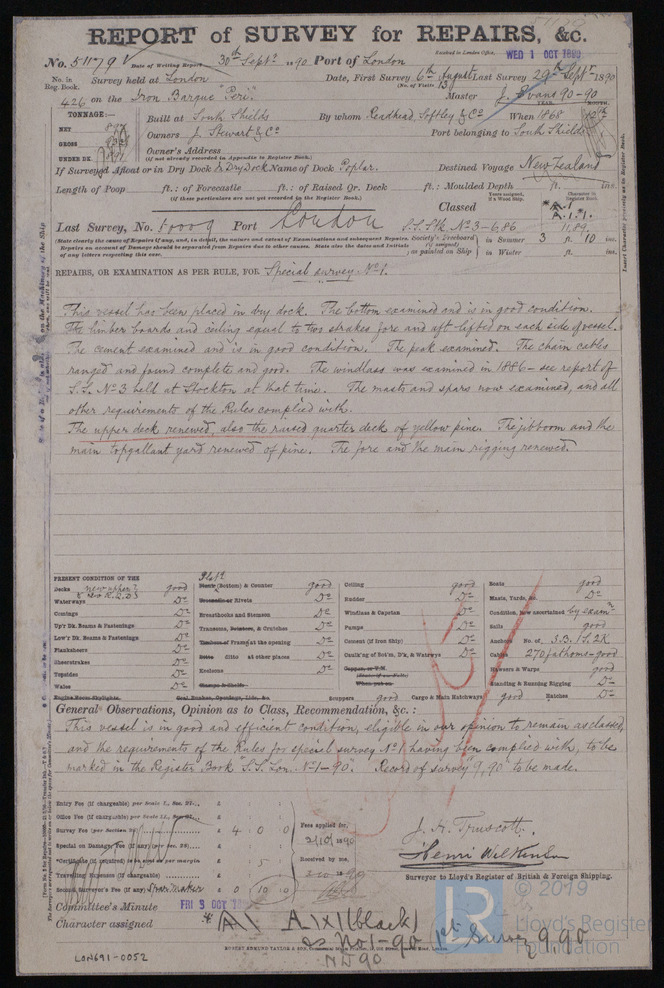 REPORT of SURVEY for REPAIRS, &c.
No. 51179 Date of Writing Report 30th Septr. 1890 Port of London
Received in London Office, WED 1 OCT 1890
No. in Reg. Book. Survey held at London Date, First Survey 6th August Last Survey 29th Septr 1890
(No. of Visits 13)
426 on the Iron Barque "Peri" Master J. Evans 90-90
TONNAGE:— Built at South Shields By whom Readhead, Softley & Co When 1868 YEAR. MONTH.
NET
GROSS
UNDER DK.
Owners J. Stewart & Co Port belonging to South Shields
Owner's Address
(if not already recorded in Appendix to Register Book.)
If Surveyed Afloat or in Dry Dock Dry Dock Name of Dock Poplar. Destined Voyage New Zealand
Length of Poop ft.: of Forecastle ft.: of Raised Qr. Deck ft.: Moulded Depth ft. ins.
(If these particulars are not yet recorded in the Register Book.)
Classed
Last Survey, No. Port London S.S. Stk. No 3-6,86
11,89
Society's Freeboard (if assigned) as painted on Ship in Summer 3 ft. 10 ins.
in Winter ft. ins.
REPAIRS, OR EXAMINATION AS PER RULE, FOR Special survey No 1.
This vessel has been placed in dry dock. The bottom examined and is in good condition.
The limber boards and ceiling equal to two strakes fore and aft lifted on each side of vessel.
The cement examined and is in good condition. The peak examined. The chain cables
ranged and found complete and good. The windlass was examined in 1886 - see report of
S.S. No 3 held at Stockton at that time. The masts and spars now examined, and all
other requirements of the Rules complied with.
The upper deck renewed, also the raised quarter deck of yellow pine. The jibboom and the
main topgallant yard renewed of pine. The fore and the main rigging renewed.
PRESENT CONDITION OF THE
Decks new upper & new R.Q.D. good
Waterways Do
Comings Do
Up'r Dk. Beams & Fastenings Do
Low'r Dk. Beams & Fastenings Do
Planksheers Do
Sheerstrakes Do
Topsides Do
Wales Do
Engine Room Skylights.
Plate (Bottom) & Counter good
Rivets Do
Breasthooks and Stemson Do
Transoms, Pointers, & Crutches Do
Frames at the opening Do
Ditto ditto at other places Do
Keelsons Do
Coal Bunker, Openings, Lids, &c.
Scuppers good
Ceiling good
Rudder Do
Windlass & Capstan Do
Pumps Do
Cement (if Iron Ship) Do
Caulk'ng of Bot'm, D'k, & Waterways Do
Copper, or Y.M.
Cargo & Main Hatchways good
Boats good
Masts, Yards, &c. Do
Condition, how ascertained by examn
Sails good
Anchors No. of 3.B. 1S. 2K
Cables 270 fathoms-good
Hawsers & Warps good
Standing & Running Rigging Do
Hatches Do
General Observations, Opinion as to Class, Recommendation, &c.:
This vessel is in good and efficient condition, eligible in our opinion to remain as classed,
and the requirements of the Rules for special survey No 1 having been complied with, to be
marked in the Register Book "S.S. Lon. No 1-90". Record of survey "9,90" to be made.
Entry Fee (if chargeable) per Scale I., Sec. 27.. £
Office Fee (if chargeable) per Scale II., Sec. 27.. £
Survey Fee (per Section 28) £ 4 0 0
Special on Damage Fee (if any) (per Sec. 28) £
Certificate (if required) to be sent as per margin £ 5
Travelling Expenses (if chargeable) £
Second Surveyor's Fee (if any) Shoemaker £ 0 10 0
Fees applied for, 2/10/1890
Received by me,
J. H. Truscott.
Henri Wilkinson
Surveyor to Lloyd's Register of British & Foreign Shipping.
Committee's Minute FRI 3 OCT 1890
Character assigned *A1 A1 (black)
SS No 1-90 1st Survey 9,90
ND 90
LON691-0052
© 2019
Lloyd's Register
Foundation
LR